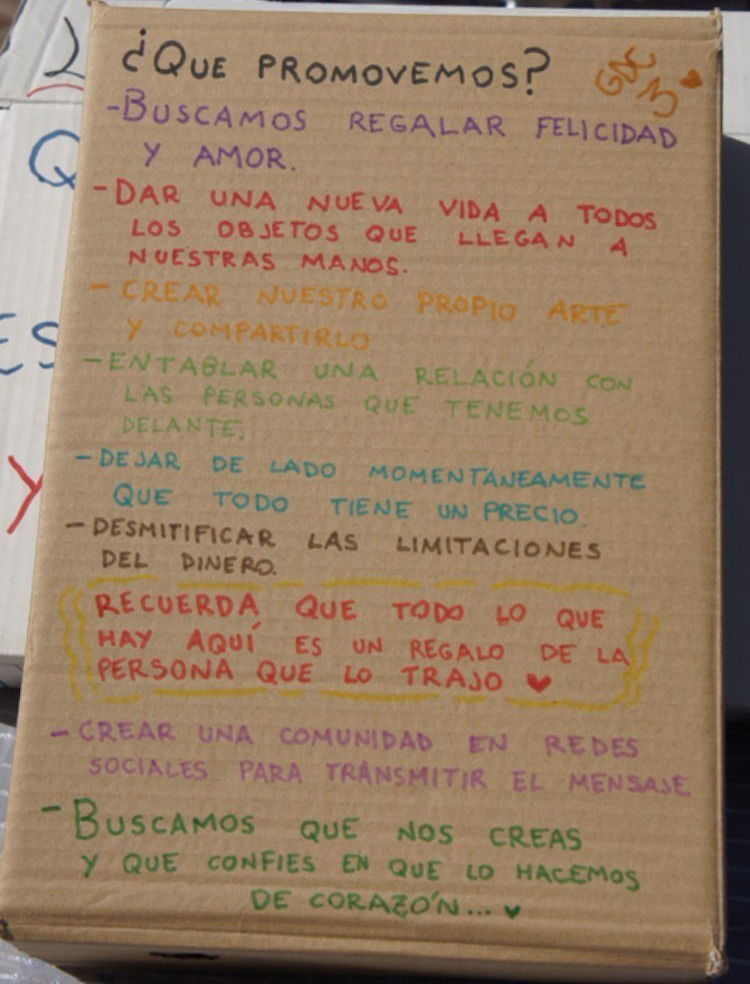 ¿QUE PROMOVEMOS?
-BUSCAMOS REGALAR FELICIDAD
Y AMOR.
-DAR UNA NUEVA VIDA A TODOS
LOS OBJETOS QUE LLEGAN A
NUESTRAS MANOS.
-CREAR NUESTRO PROPIO ARTE
Y COMPARTIRLO
-ENTABLAR UNA RELACIÓN CON
LAS PERSONAS QUE TENEMOS
DELANTE.
-DEJAR DE LADO MOMENTANEAMENTE
QUE TODO TIENE UN PRECIO.
-DESMITIFICAR LAS LIMITACIONES
DEL DINERO.
RECUERDA QUE TODO LO QUE
HAY AQUÍ ES UN REGALO DE LA
PERSONA QUE LO TRAJO ♥
-CREAR UNA COMUNIDAD EN REDES
SOCIALES PARA TRANSMITIR EL MENSAJE
-BUSCAMOS QUE NOS CREAS
Y QUE CONFIES EN QUE LO HACEMOS
DE CORAZÓN... ♥